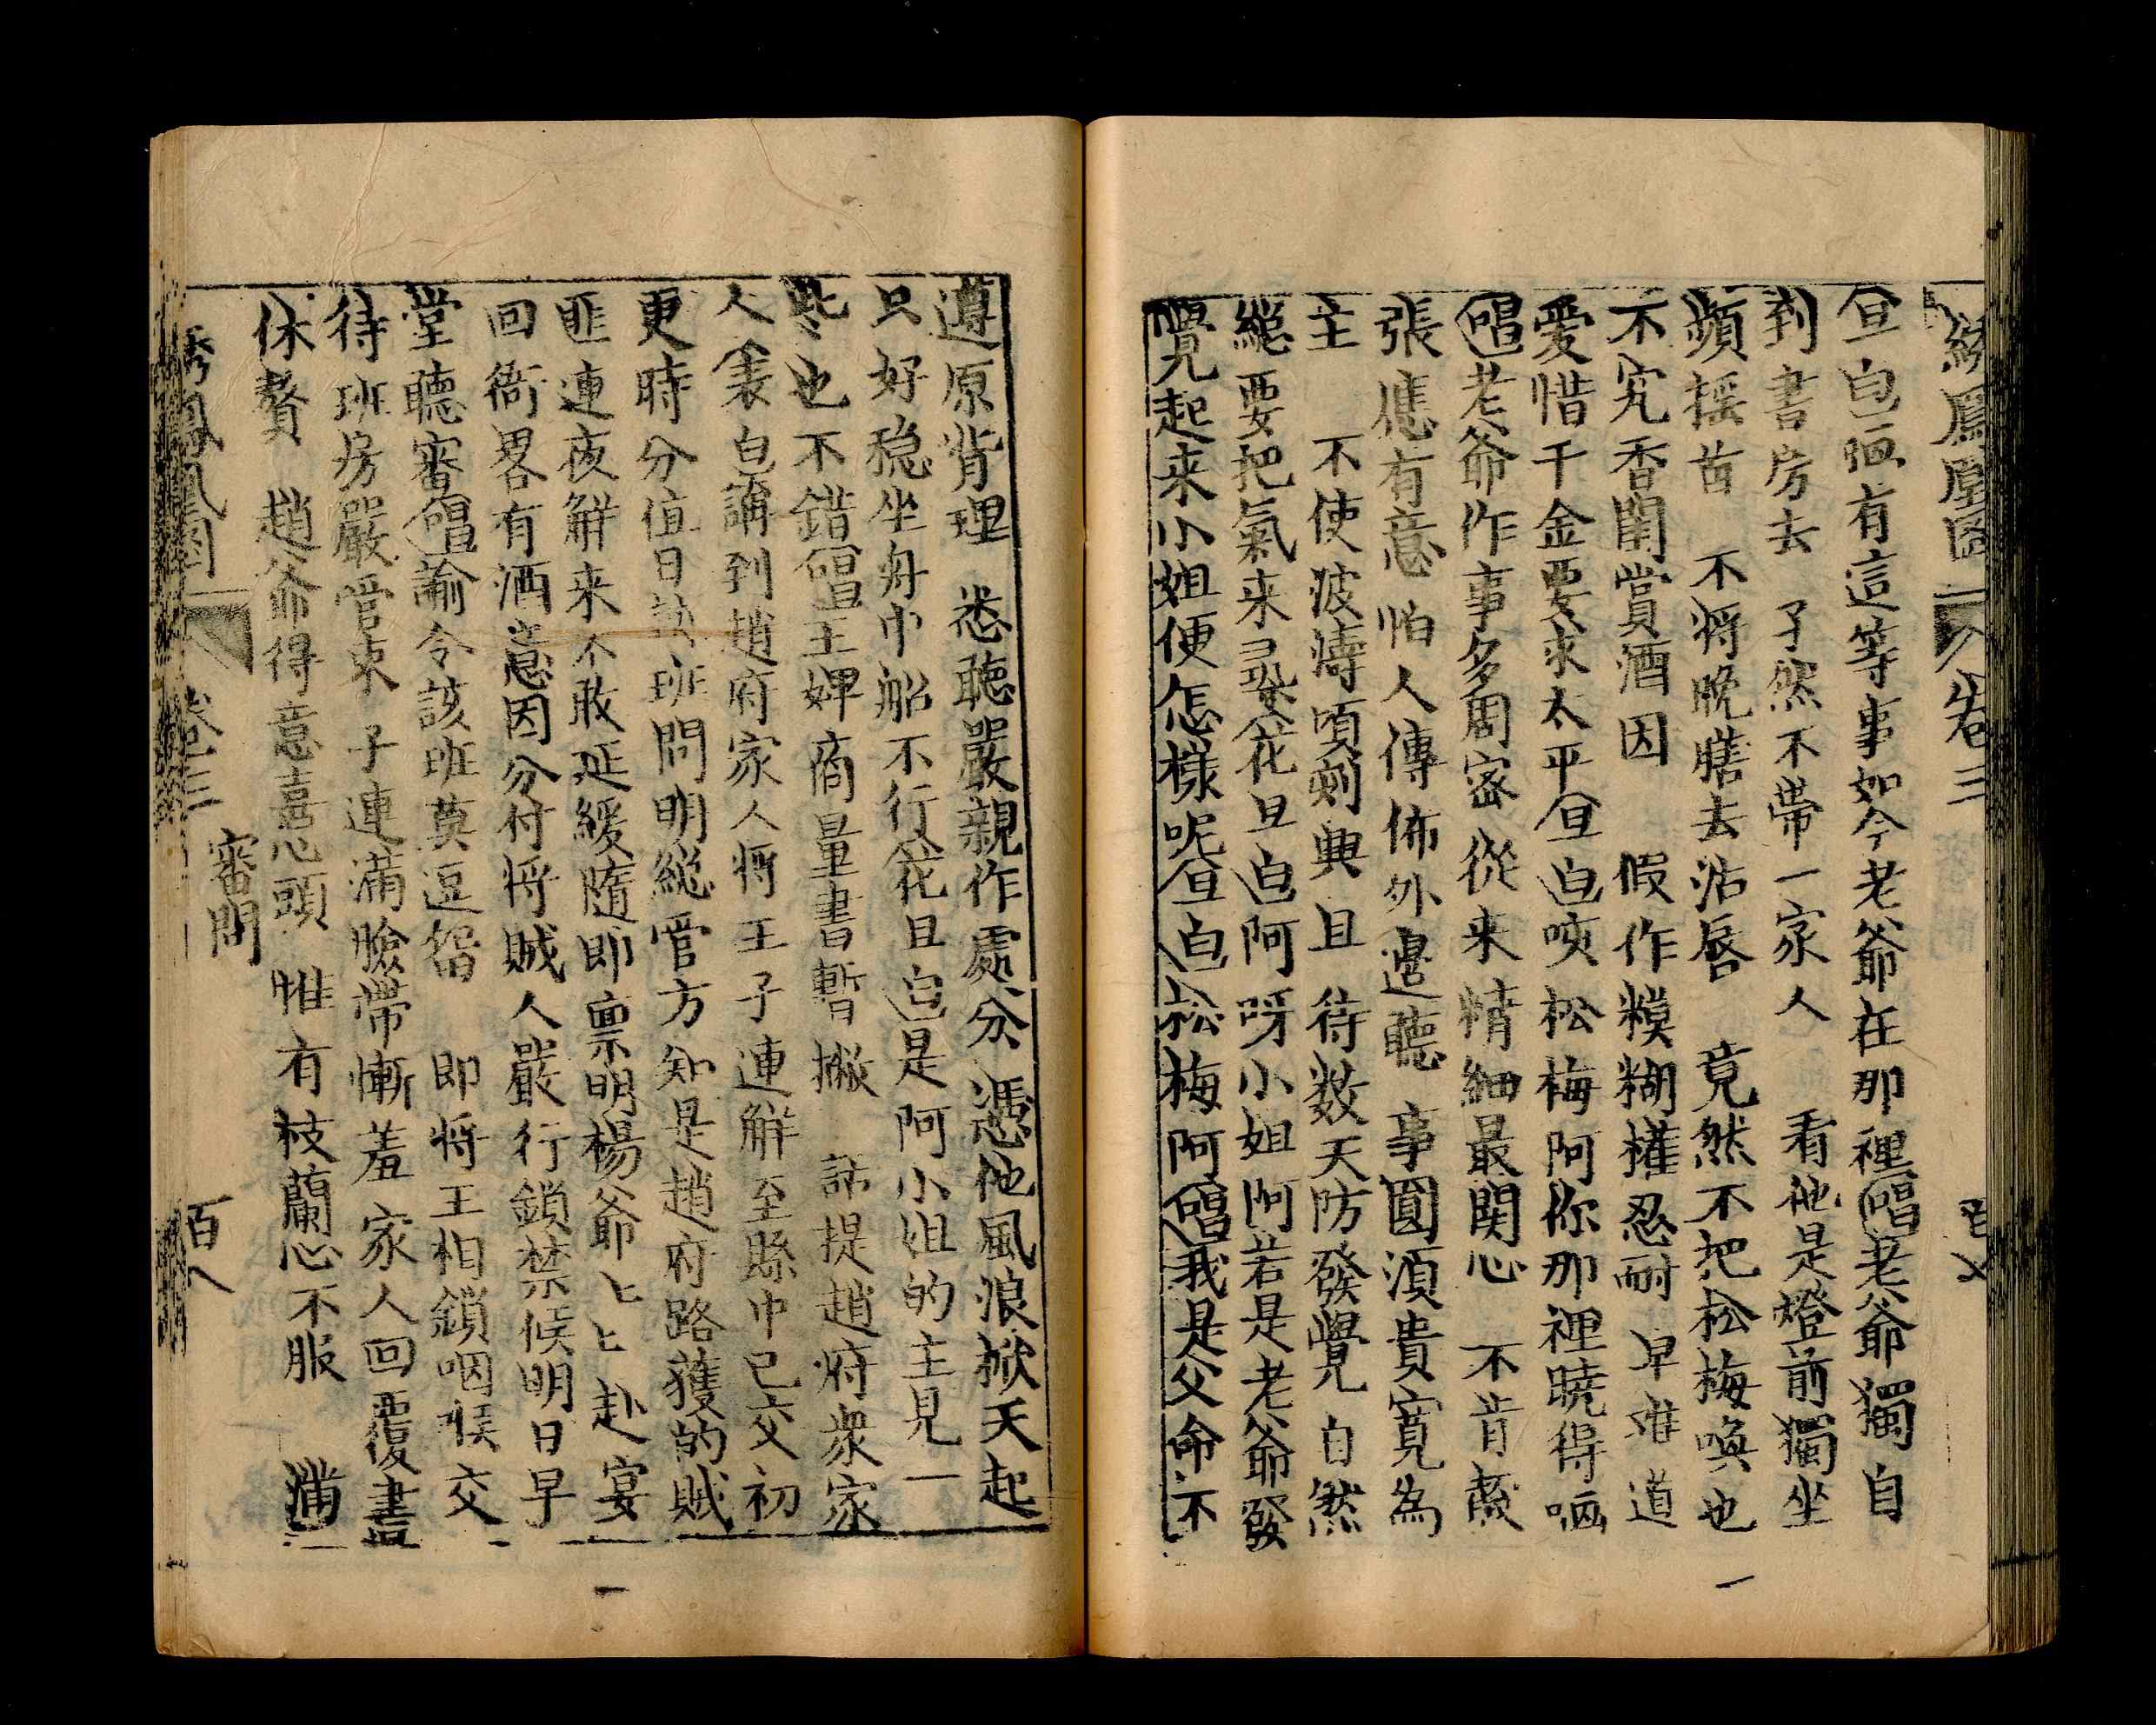 卷三
旦白原有這等事如今老爺在那裡唱老爺獨自
到書房去 孑然不帶一家人 看他是燈前獨坐
頻搖首 不將晚膳去沾唇 竟然不把松梅喚也
不究香閨賞酒因 假作糢糊權忍耐 早难道
愛惜千金要求太平旦白咦松梅阿你那裡曉得
唱老爺作事多周密 從来精細最関心 不肯
張惶有意 怕人傳佈外邉聽 事圓湏貴寬為
主 不使波濤頃刻興 且 待数天防發覺 自然
總要把氣来尋花旦白阿呀小姐阿若是老爺發
覺起来小姐便怎樣呢旦白松梅阿唱我是父命不
遵原背理 悉聽嚴親作處分 慿他風浪掀天起
只好穏坐舟中船不行花旦白是阿小姐的主見一
些也不錯唱主婢商量書暫撇 話提趙府衆家
人表白講到趙府家人将王子連觧至縣中已交初
更時分值日班問明縂管方知是趙府路獲的賊
匪連夜觧来不敢延緩隨即禀明楊爺匕匕赴宴
回衙畧有酒意因分付将賊人嚴行鎖禁候明日早
堂聽審唱諭令該班莫逗留 即将王相鎖咽喉交
待班房嚴管束 子連滿臉帶慚羞 家人回覆書
休贅 趙爺得意喜心頭 惟有枝蘭心不服 滿
綉鳳凰圖 卷三 審問 百八